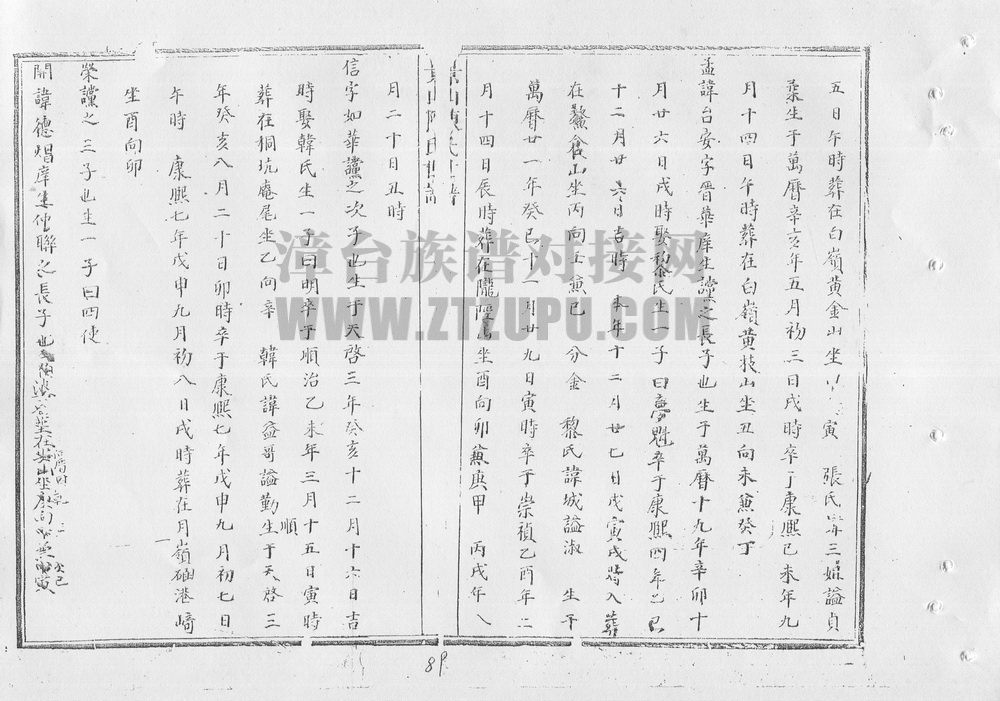 五日午時葬在白嶺黃金山坐 寅 張氏 三娘謚貞
葉生于萬曆辛亥年五月初三日戌時卒于康熙己未年九
月十四日午時葬在白嶺黃枝山坐丑向未兼癸丁
孟諱台安字晋華庠生讜之長子也生于萬曆十九年辛卯十
月廿六日戌時娶黎氏生一子曰夢魁卒于康熙四年乙巳
十二月廿六日吉時 本年十二月廿七日戊寅戌時入葬
在鰲倉山坐丙向壬兼巳 分金 黎氏諱城謚淑 生于
萬曆廿一年癸巳十一月廿九日寅時卒于崇禎乙酉年二
月十四日辰時葬在隴 坐酉向卯兼庚甲 丙戌年八
月二十日丑時
信字如華讜之次子也生于天啓三年癸亥十二月十六日吉
時娶韓氏生一子曰明卒于順治乙未年三月十五日寅時
順
葬在桐坑庵尾坐乙向辛 韓氏諱益哥謚勤生于天啓三
年癸亥八月二十日卯時卒于康熙七年戊申九月初七日
午時 康熙七年戊申九月初八日戌時葬在月嶺 港崎
坐酉向卯
榮讜之三子也生一子曰四使
開諱德焻庠生 聯之長子也 葬在 山坐庚向甲兼 寅
漳台族谱对接网
WWW.ZTZUPU.COM
89